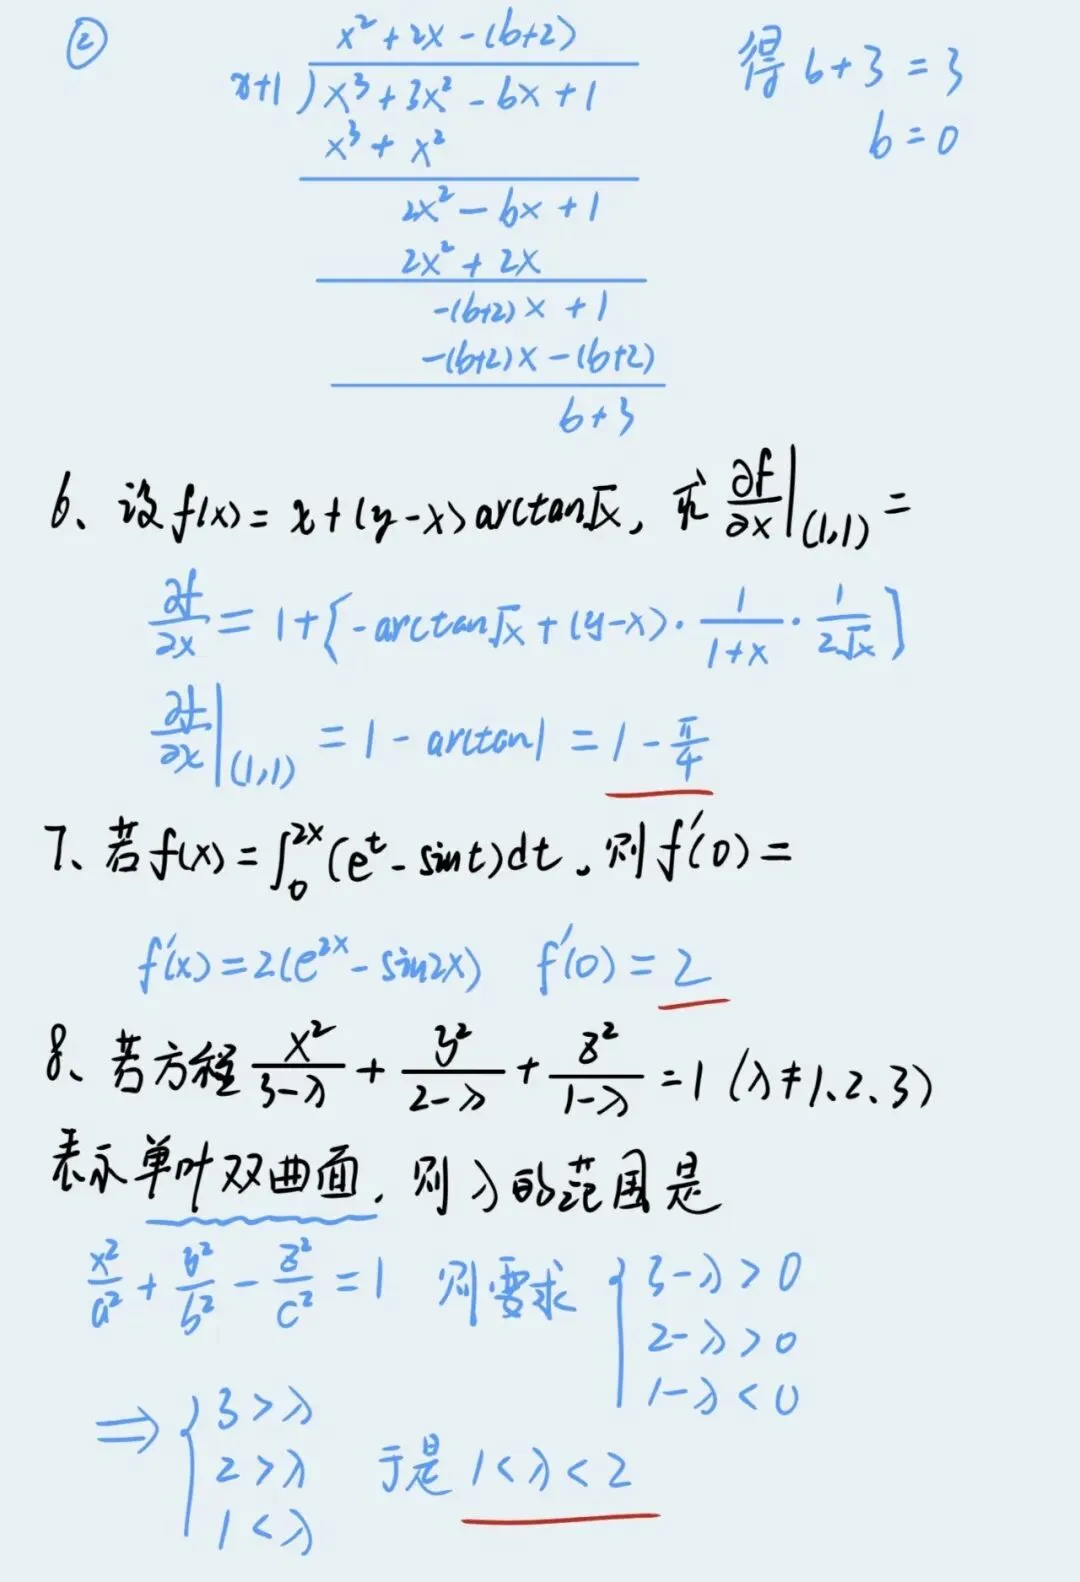 ② x²+2x-(b+2)
x+1 ) x³+3x²-bx+1 得 b+3=3
x³+x² b=0
2x²-bx+1
2x²+2x
-(b+2)x+1
-(b+2)x-(b+2)
b+3
6、设f(x)=x+(y-x)arctan√x, 求 ∂f/∂x|(1,1) =
∂f/∂x = 1+[-arctan√x+(y-x)·1/(1+x)·1/(2√x)]
∂f/∂x|(1,1) = 1-arctan1 = 1-π/4
7、若f(x)=∫₀^{2x}(e^t-sint)dt,则f′(0)=
f′(x)=2(e^{2x}-sin2x) f′(0)=2
8、若方程 x²/(3-λ) + y²/(2-λ) + z²/(1-λ) =1 (λ≠1、2、3)
表示单叶双曲面,则λ的范围是
x²/a² + y²/b² - z²/c² = 1 则要求 { 3-λ>0
2-λ>0
1-λ<0
⇒ { 3>λ
2>λ 于是 1<λ<2
1<λ